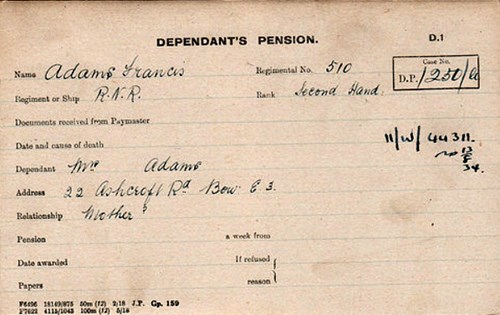 DEPENDANT'S PENSION.
D.1
Name Adams Francis Regimental No. 510
Case No.
D.P. 1/250/
Regiment or Ship R.N.R. Rank Second Hand.
Documents received from Paymaster
Date and cause of death
11/W/44311.
Dependant Mrs Adams
34.
Address 22 Ashcroft Rd Bow E3.
Relationship Mother?
Pension a week from
Date awarded If refused
Papers reason
F6496 18149/875 50m (12) 2/18 J.P. Gp. 159
F7622 4115/1043 100m (12) 5/18